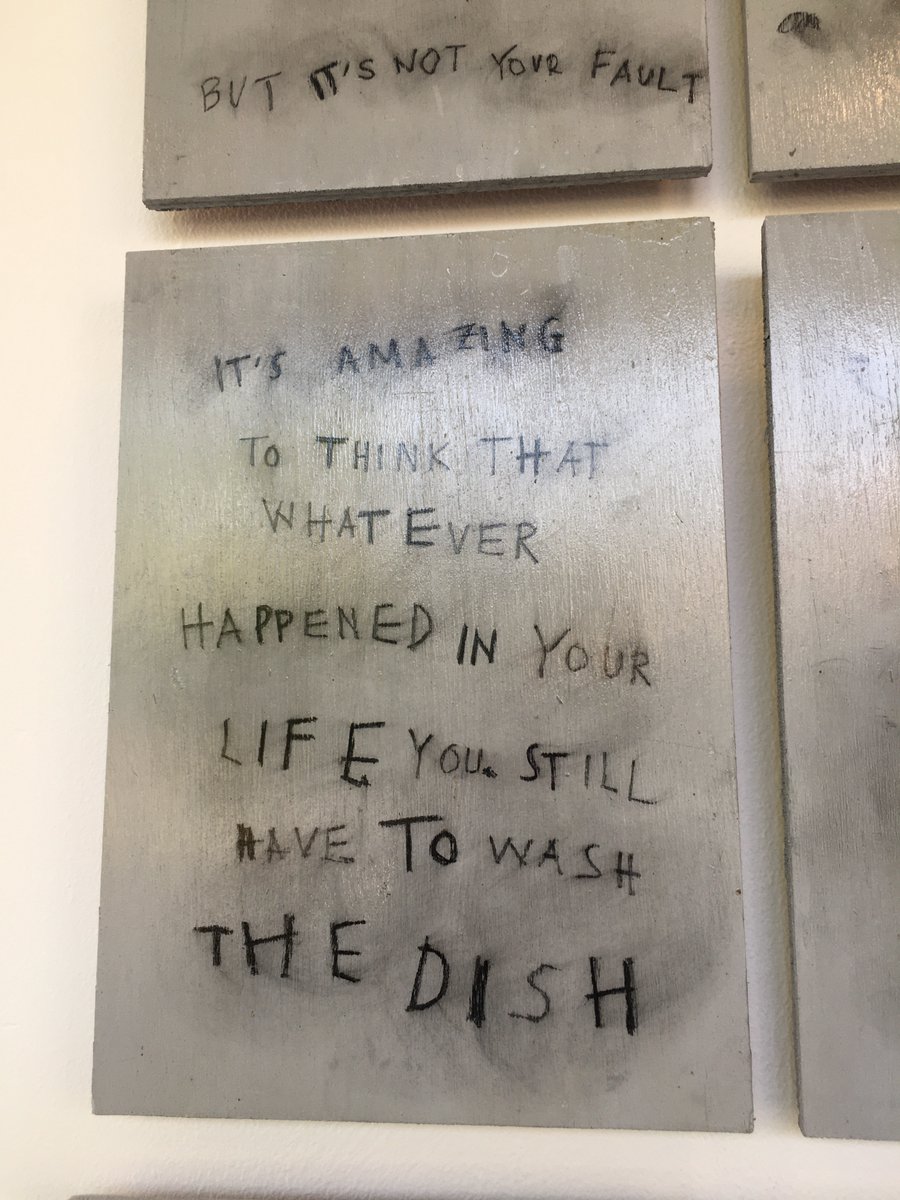 BUT IT'S NOT YOUR FAULT
IT'S AMAZING
TO THINK THAT
WHATEVER
HAPPENED IN YOUR
LIFE YOU. STILL
HAVE TO WASH
THE DISH